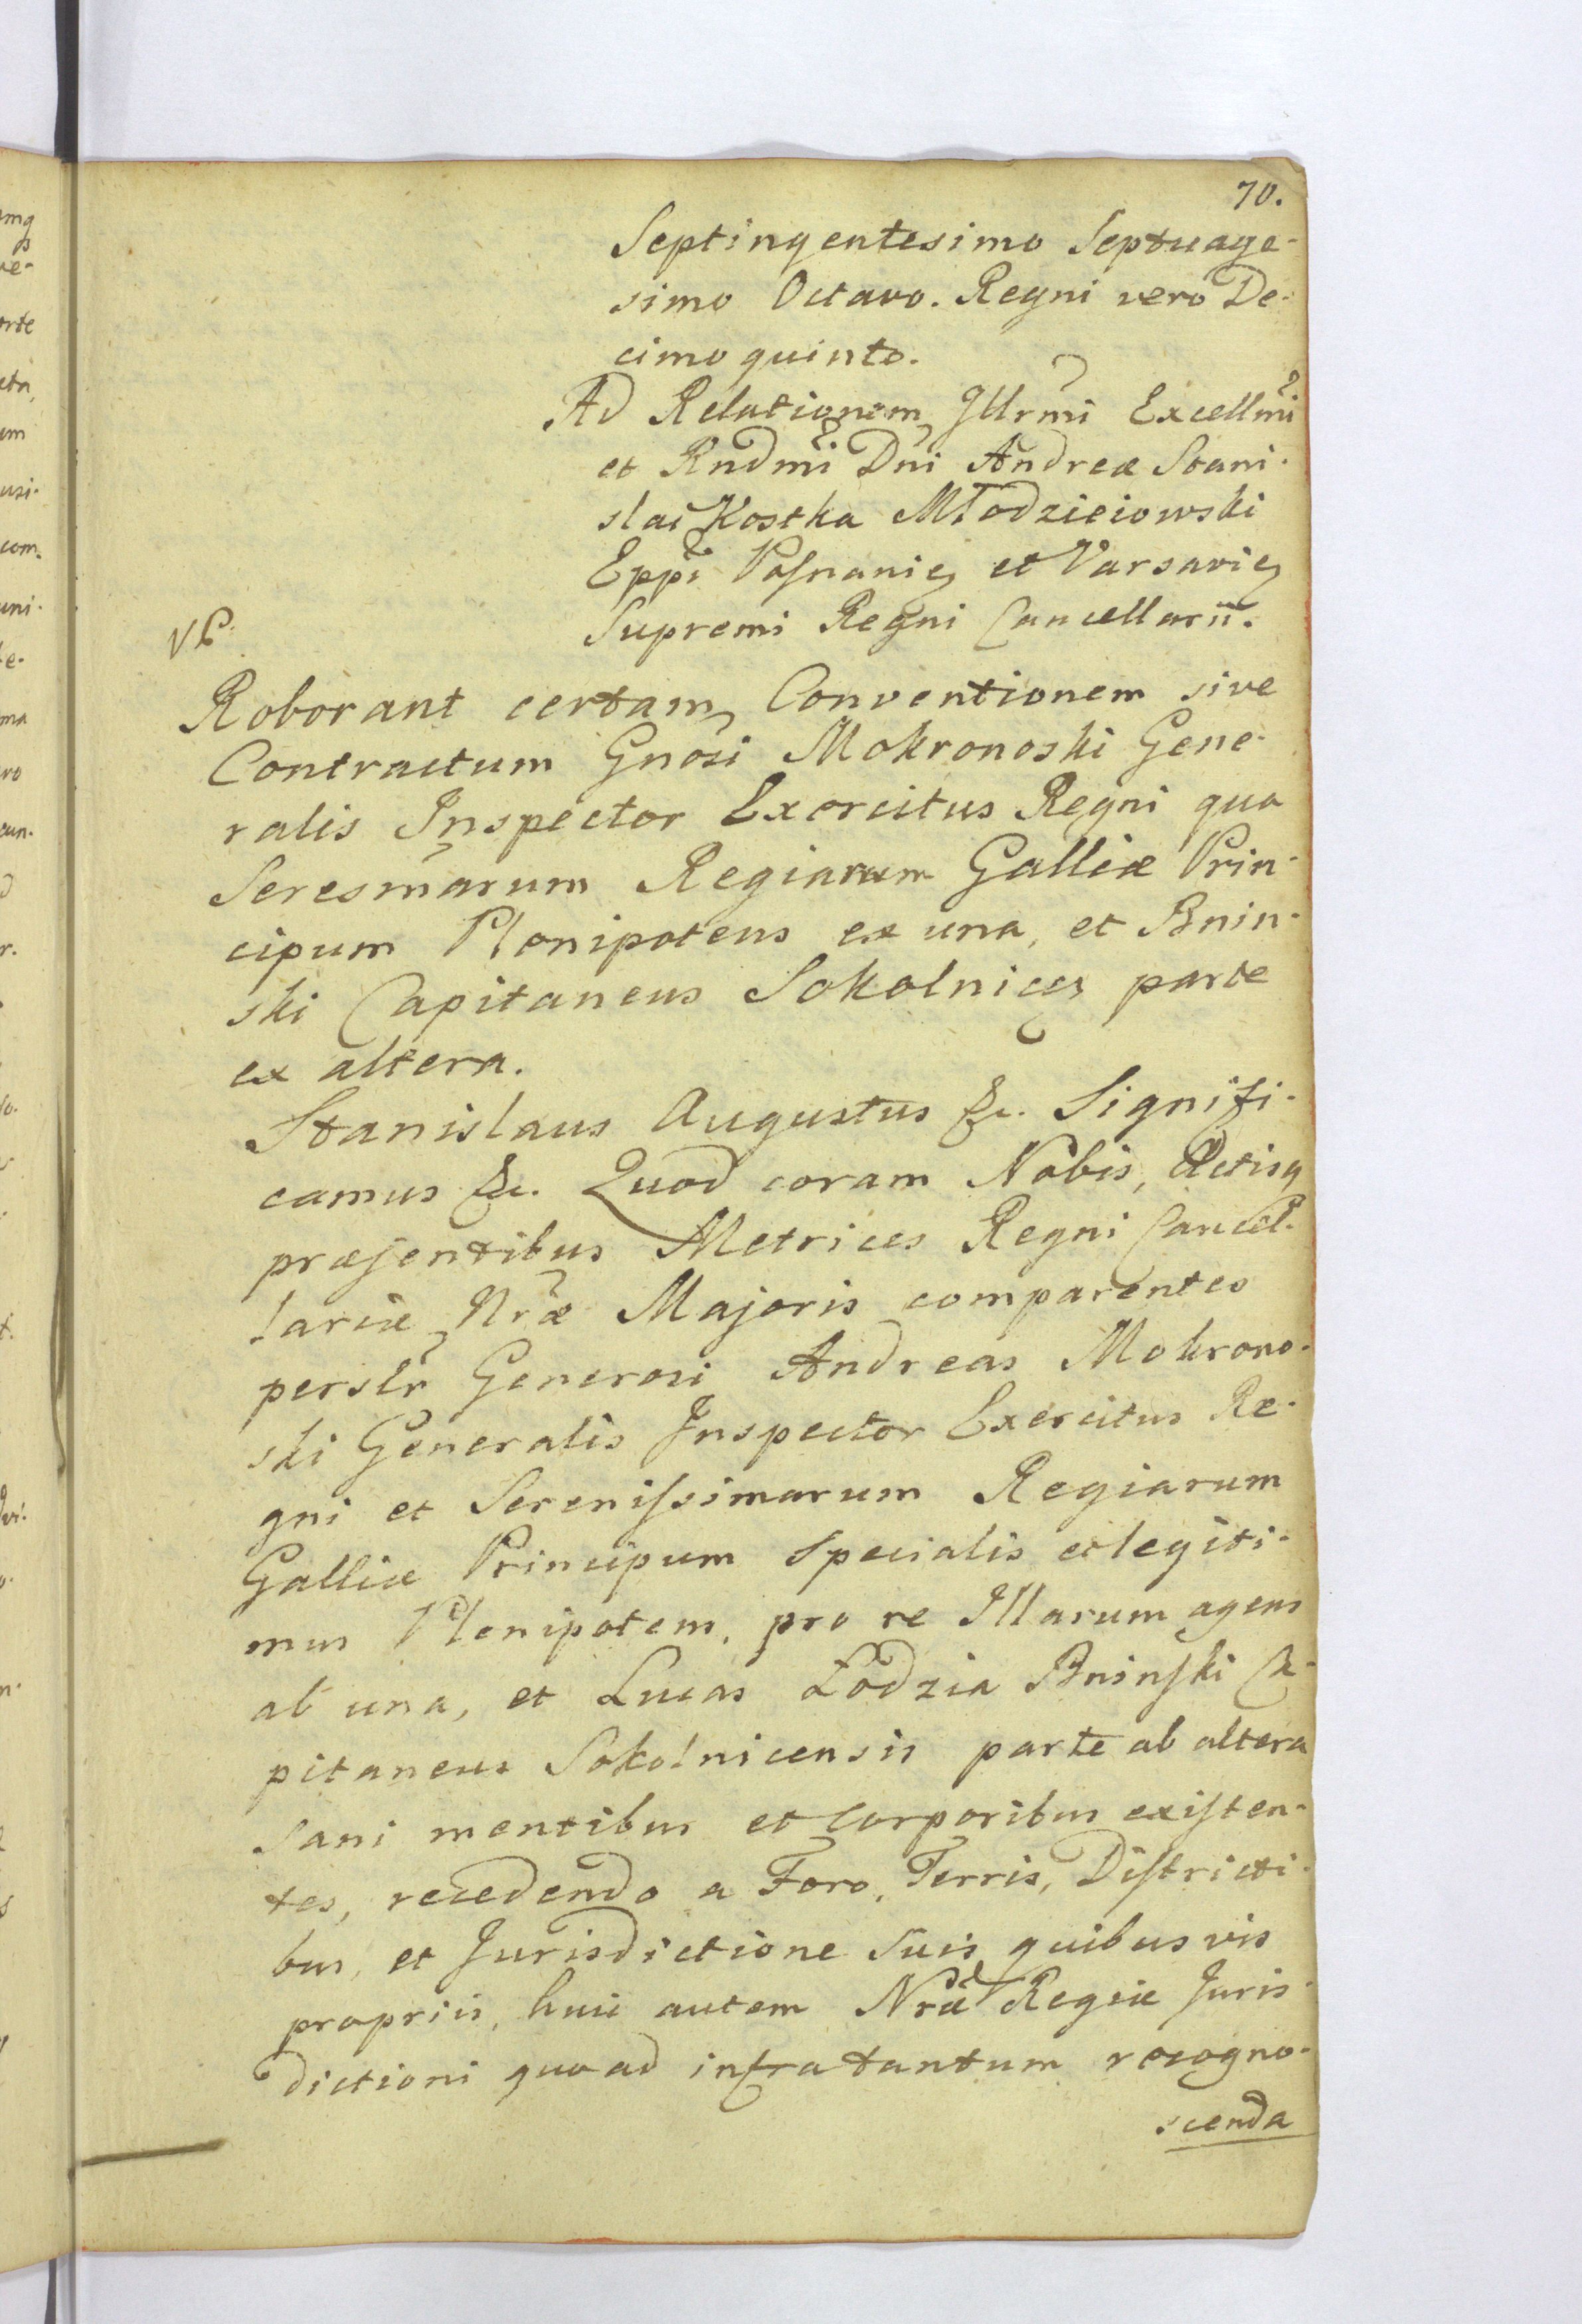 70.
Septingentesimo Septuage-
simo Octavo. Regni vero De-
cimo quinto.
Ad Relationem Illrmi Excellmi
et Rndmi Dni Andreæ Stani-
slai Kostka Młodzieiowski
Eppi Posnanię et Varsavię
Supremi Regni Cancellarii.
Roborant certam Conventionem sive
Contractum Gnosi Mokronoski Gene-
ralis Inspector Exercitus Regni qua
Seresmarum Regiarum Galliæ Prin-
cipum Plenipotens ex una, et Bnin-
ski Capitaneus Sokolnicen parte
ex altera.
Stanislaus Augustus &c. Signifi-
camus &c. Quod coram Nobis, Actisq
præsentibus Metrices Regni Cancel-
lariæ Nræ Majoris comparentes
persłr Generosi Andreas Mokrono-
ski Generalis Inspector Exercitus Re-
gni et Serenissimarum Regiarum
Galliæ Principum Specialis et legiti-
mus Plenipotens, pro re Illarum agens
ab una, et Lucas Łodzia Bninski Ca-
pitaneus Sokolnicensis parte ab altera
Sani mentibus et Corporibus existen-
tes, recedendo a Foro, Terris, Districti-
bus, et Jurisdictione Suis quibusvis
propriis, huic autem Nræ Regiæ Juris-
dictioni quoad infra tantum recogno-
scenda